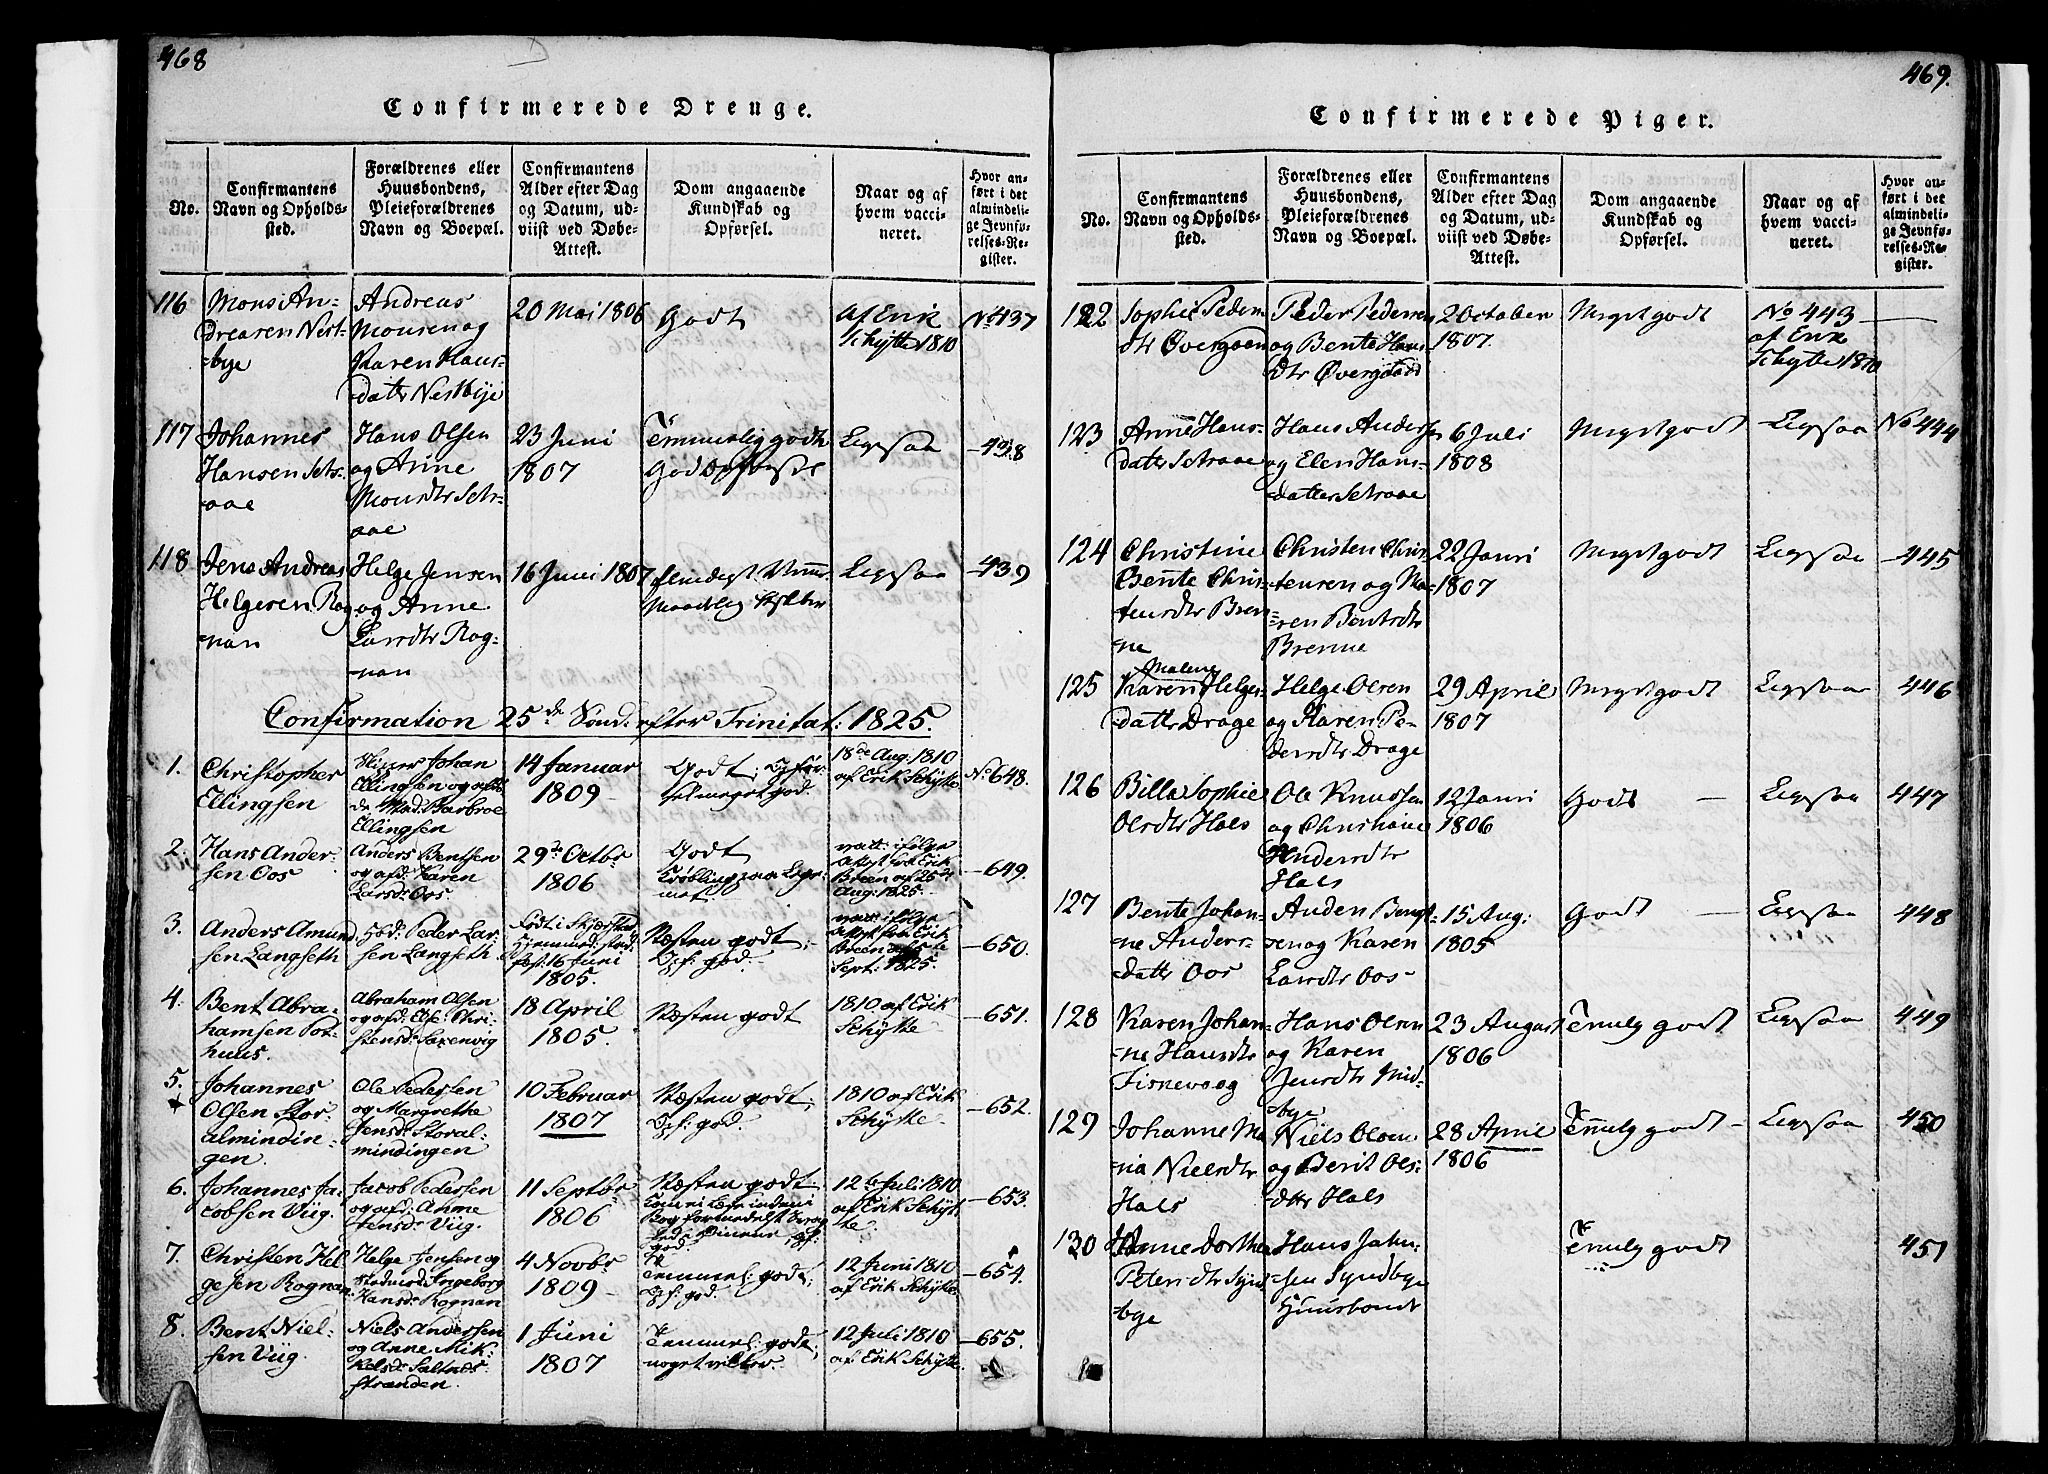 468
Confirmerede Drenge.
No.
Confirmantens Navn og Opholds-sted.
Forældrenes eller Huusbondens, Pleieforældrenes Navn og Boepæl.
Confirmantens Alder efter Dag og Datum, ud-viist ved Døbe-Attest.
Dom angaaende Kundskab og Opførsel.
Naar og af hvem vacci-neret.
Hvor an-ført i det almindeli-ge Jevnfø-relses-Re-gister.
116
Mons An-
drearen Nest-
=bye
Andreas
Monsen og
Karen Hans-
datter Nestbye
20 Mai 1806
Godt
af Erik
Schytte 1810
No 437
117
Johannes
Hansen Setr-
aae
Hans Olsen
og Anne
Monsdtr Setr-
aae
23 Juni
1807
Temmelig godt
Ligesaa
438
118
Jens Andreas
Helgesen Rog
=nan
Helge Jensen
og Anne
Larsdtr Rog-
=nan
16 Juni 1807
Ligesaa
439
Confirmation 25de Sønd. efter Trinitat: 1825.
1.
Christopher
Ellingsen
Johan
Ellingsen og
Mad: Barbroe
Ellingsen
14 Januar
1809
Godt; Opfør-
sel meget god.
18de Aug: 1810
af Erik Schytte
No 648.
2.
Hans Ander-
sen Oos
Anders Bentsen
og afd: Karen
Larsdr Oos.
29de Octbr
1806
Godt
vacc: ifølge
Attest fra Erik
Breen af 25de
Aug: 1825.
649.
3.
Anders Amund
sen Langseth
Peder Lar-
sen Langseth
16 Juni
1805.
Næsten godt;
Opf: god.
vacc: ifølge
Attest fra Erik
Breen af
Sept: 1825.
650.
4.
Bent Abra-
hamsen Por-
huus.
Abraham Olsen
og afd: Else Chri-
stensdr Saxenvig
18 April
1805.
Næsten godt
1810 af Erik
Schytte
651.
5.
Johannes
Olsen Stor-
almindin-
gen.
Ole Pedersen
og Margrethe
Jensdr Storal-
mindingen
10 Februar
1807
Næsten godt;
Opf: god.
1810 af Erik
Schytte
652.
6.
Johannes Ja-
cobsen Viig.
Jacob Pedersen
og afd: Anne
Jensdr Viig.
11 Septbr
1806
Næsten godt;
god.
12te Juli 1810
af Erik Schyt-
te
653.
7.
Christen Hel
gesen Rognan
Helge Jensen og
Stedmod: Ingeborg
Hansdr Rognan
4 Novbr
1809
Temmel: godt;
Opf: god.
12 Juni 1810
af Erik Schytte
654.
8.
Bent Niel-
sen Viig.
Niels Andersen
og Anne Mik-
kelsdr Saltnes-
stranden.
1 Juni
1807
Temmel: godt;
12 Juli 1810
af Erik Schytte
655.
469.
Confirmerede Piger.
No.
Confirmantens Navn og Opholds-sted.
Forældrenes eller Huusbondens, Pleieforældrenes Navn og Boepæl.
Confirmantens Alder efter Dag og Datum, ud-viist ved Døbe-Attest.
Dom angaaende Kundskab og Opførsel.
Naar og af hvem vacci-neret.
Hvor an-ført i det almindeli-ge Jevnfø-relses-Re-gister.
122
Sophie Peders
dtr Øvergaard
Peder Pedersen
og Bente Hans
dtr Øvergaard
2 October
1807
Meget godt
No 443
af Erik
Schytte 1810
123
Anne Hans-
datter Setraae
Hans Andersen
og Elen Hans-
datter Setraae
6 Juli
1808
Meget godt
Ligesaa
No 444
124
Christine
Bente Chris-
tensdtr Bren-
ne
Christen Chris
tensen og Ma-
=ren Bentsdtr
Brenne
22 Janri
1807
Meget godt
Ligesaa
445
125
Malene
Karen Helges-
datter Drage
Helge Olsen
og Karen Pe-
dersdtr Drage
29 April
1807
Meget godt
Ligesaa
446
126
Billa Sophie
Olsdtr Hals
Ole Knudsen
og Christiane
Andersdtr
Hals
12 Janri
1806
Godt
Ligesaa
447
127
Bente Johan-
=ne Anders-
datter Oos
Anders Bengt-
sen og Karen
Larsdtr Oos
15 Aug:
1805
Godt
Ligesaa
448
128
Karen Johan-
=ne Hansdtr
Fisnevaag
Hans Olsen
og Karen
Jensdtr Mid-
=bye
23 August
1806
Temlig godt
Ligesaa
449
129
Johanne Ma
=ria Nielsdtr
Hals
Niels Olsen
og Berit Ols-
=dtter Hals
28 April
1806
Temlig godt
Ligesaa
450
130
Anne Dorthea
Peters=dtr Synd
=bye
Hans Jahn-
=sen Syndbye
Huusbond
Temlig godt
451